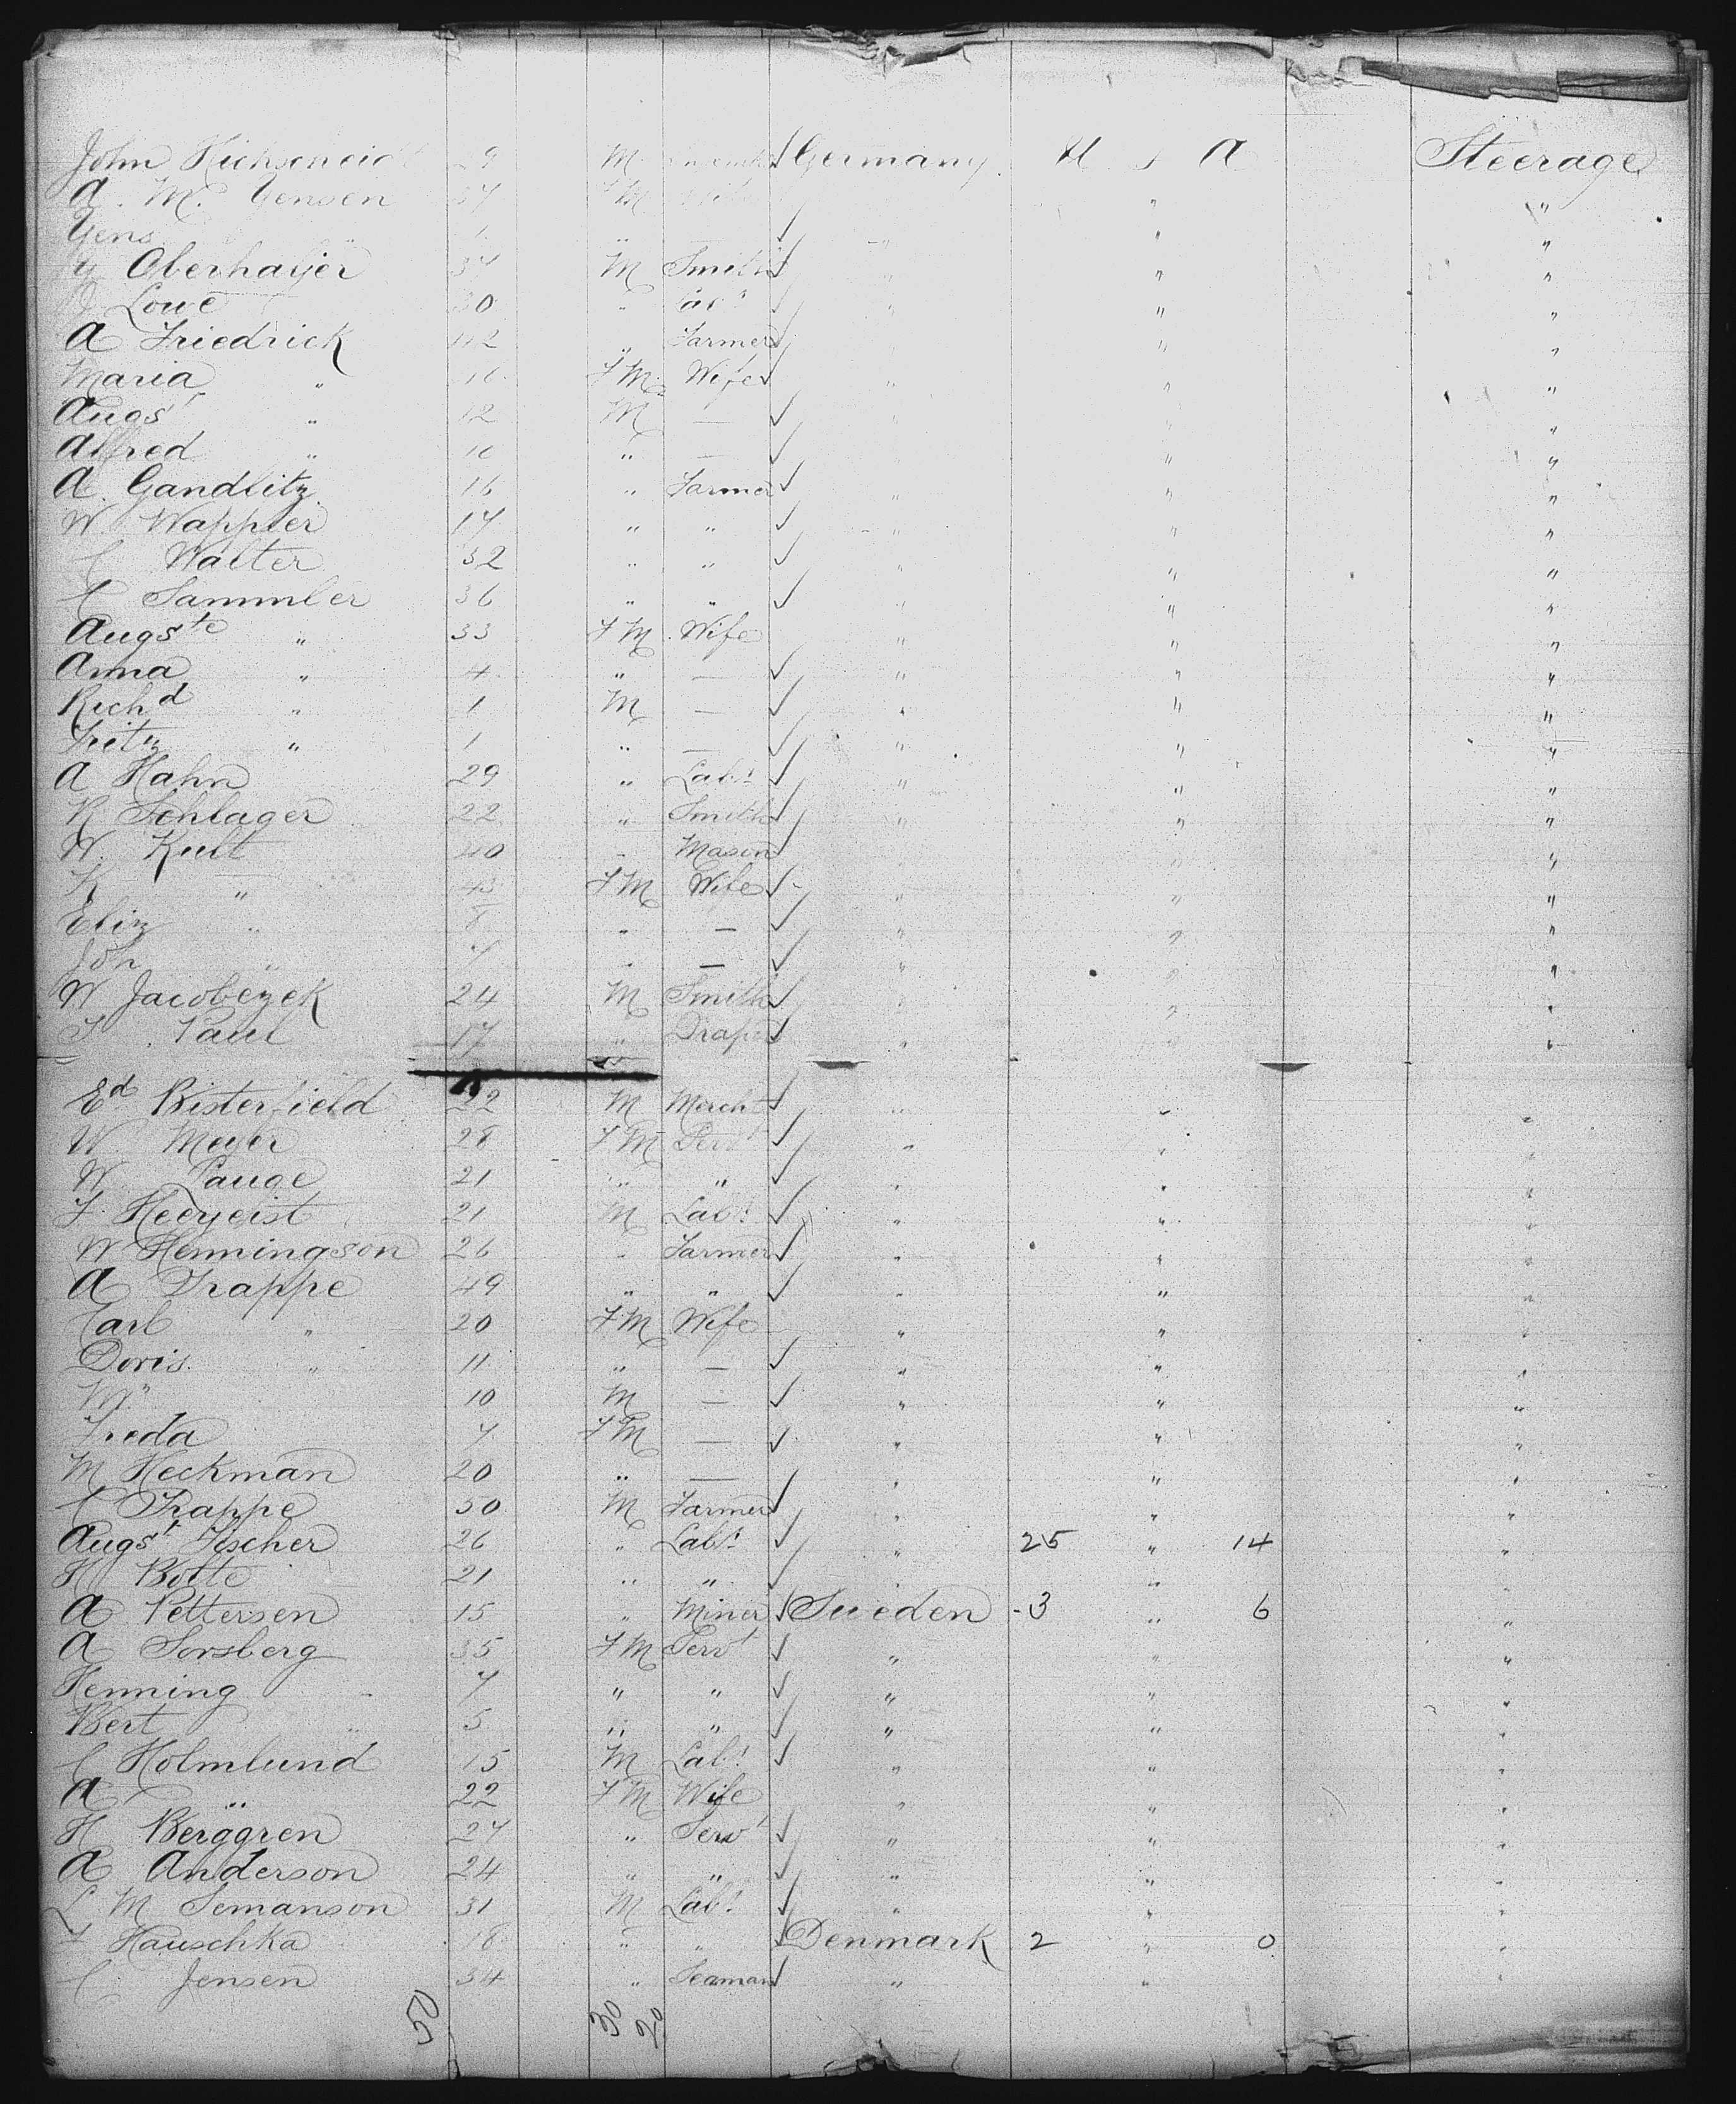 John 29 M Germany U S A Steerage
A. M. Jensen 34 FM " "
Yens 1 " ✓ " " "
Oberhauer 34 M Smith ✓ " "
Lowe 30 " Labr ✓ " " "
A Friedrick 42 " Farmer ✓ " "
Maria " FM Wife ✓ " " "
Augst " 12 M — ✓ " "
Alfred " 10 " — ✓ " "
A. Gandlitz 16 " Farmer ✓ " " "
W. Wappler 17 " " ✓ " " "
C Walter 32 " " ✓ " " "
C Sammler 36 " " ✓ " " "
Augste " 33 FM Wife " " "
Anna " 4 " — ✓ " " "
Richd " 1 M — ✓ " " "
Fritz " 1 " — ✓ " " "
A Hahn 29 " Labr ✓ " " "
K Schlager 22 " Smith ✓ " " "
W. Kult 40 " Mason ✓ " "
K " 43 FM Wife ✓ " " "
Eliz " 8 " — ✓ " " "
Joh " 7 " — ✓ " " "
W Jacobezek 24 M Smith ✓ " " "
F Paul 17 " Drap ✓ " " "
Ed Bisterfield 22 M Mercht ✓ " " "
W. Meyer 28 FM Servt ✓ " " "
W. Pauge 21 " " ✓ " " "
F. 21 M Labr ✓ " " "
W Henningson 26 " Farmer ✓ " " "
A Trappe 49 " " ✓ " " "
Carl " 20 FM Wife " " "
Doris " 11 " — ✓ " " "
Wm " 10 M — ✓ " " "
Freda 7 FM — ✓ " " "
M Heckman 20 " — ✓ " " "
C Trappe 50 M Farmer ✓ " " "
Augst Fischer 26 " Labr ✓ " 25 " 14 "
H Bolte 21 " " ✓ " " "
A Pettersen 15 " Miner ✓ Sweden - 3 " 6 "
A Sorsberg 35 FM Servt ✓ " " "
Henning " 7 " " ✓ " " "
Bert " 5 " " ✓ " " "
C Holmlund 15 M Labr ✓ " " "
A " 22 FM Wife " " "
H Berggren 27 " Servt ✓ " " "
A Anderson 24 " " ✓ " " "
L M Semanson 31 M Labr ✓ " " "
F Hauschka 18 " " ✓ Denmark 2 " 0 "
C Jensen 34 " Seaman ✓ " " "
50 30 20